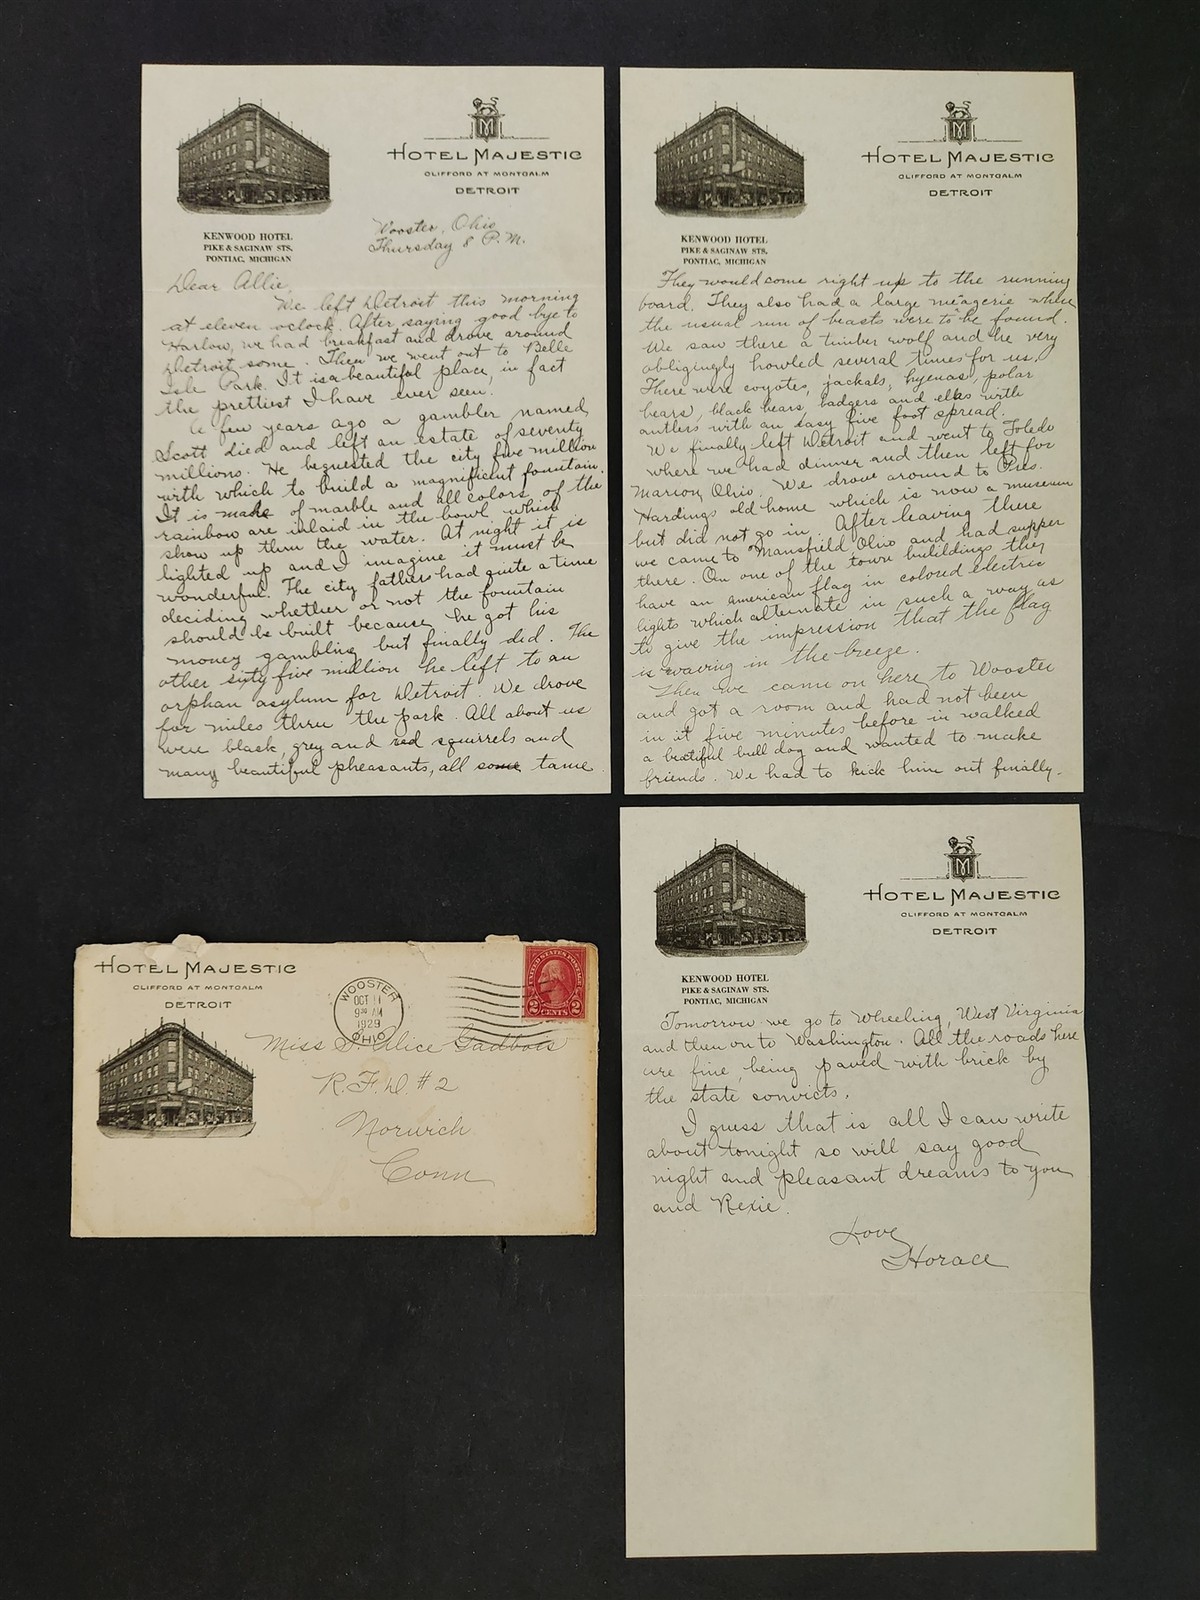 HOTEL MAJESTIC
CLIFFORD AT MONTCALM
DETROIT
KENWOOD HOTEL
PIKE & SAGINAW STS.
PONTIAC, MICHIGAN
Wooster, Ohio
Thursday 8 P.M.
Dear Allie,
We left Detroit this morning
at eleven oclock. After saying good bye to
Harlow, we had breakfast and drove around
Detroit some. Then we went out to Belle
Isle Park. It is a beautiful place, in fact
the prettiest I have ever seen.
A few years ago a gambler named
Scott died and left an estate of seventy
millions. He bequested the city five million
with which to build a magnificent fountain.
It is made of marble and all colors of the
rainbow are inlaid in the bowl which
show up thru the water. At night it is
lighted up and I imagine it must be
wonderful. The city fathers had quite a time
deciding whether or not the fountain
should be built because he got his
money gambling but finally did. The
other sixty five million he left to an
orphan asylum for Detroit. We drove
for miles thru the park. All about us
were black, grey and red squirrels and
many beautiful pheasants, all some tame.
HOTEL MAJESTIC
CLIFFORD AT MONTCALM
DETROIT
KENWOOD HOTEL
PIKE & SAGINAW STS.
PONTIAC, MICHIGAN
They would some right up to the running
board. They also had a large menagerie where
the usual run of beasts were to be found.
We saw there a timber wolf and he very
obligingly howled several times for us.
There were coyotes, jackals, hyenas, polar
bears, black bears, badgers and elks with
antlers with an easy five foot spread.
We finally left Detroit and went to Toledo
where we had dinner and then left for
Marion, Ohio. We drove around to Pres.
Hardings old home which is now a museum
but did not go in. After leaving there
we came to Mansfield, Ohio and had supper
there. On one of the town buildings they
have an american flag in colored electric
lights which alternate in such a way as
to give the impression that the flag
is waving in the breeze.
Then we came on here to Wooster
and got a room and had not been
in it five minutes before in walked
a beautiful bull dog and wanted to make
friends. We had to kick him out finally.
HOTEL MAJESTIC
CLIFFORD AT MONTCALM
DETROIT
KENWOOD HOTEL
PIKE & SAGINAW STS.
PONTIAC, MICHIGAN
Tomorrow we go to Wheeling, West Virginia
and then on to Washington. All the roads here
are fine, being paved with brick by
the state convicts.
I guess that is all I can write
about tonight so will say good
night and pleasant dreams to you
and Rexie.
Love
Horace
HOTEL MAJESTIC
CLIFFORD AT MONTCALM
DETROIT
WOOSTER
OCT 11
9 30 AM
1929
OHIO
UNITED STATES POSTAGE
2 CENTS 2
Miss S. Alice Gadbois
R.F.D. #2
Norwich
Conn
M
M
M